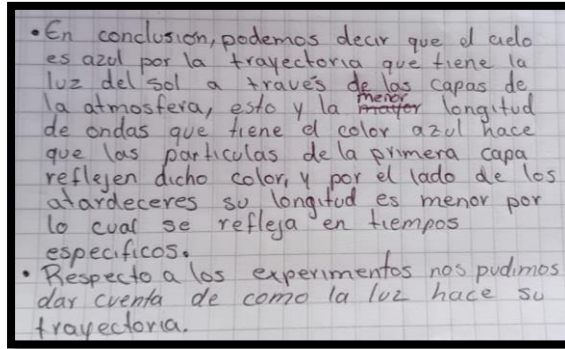 • En conclusión, podemos decir que el cielo
es azul por la trayectoria que tiene la
luz del sol a través de las capas de
la atmosfera, esto y la menor longitud
de ondas que tiene el color azul hace
que las particulas de la primera capa
reflejen dicho color, y por el lado de los
atardeceres su longitud es menor por
lo cual se refleja en tiempos
especificos.
• Respecto a los experimentos nos pudimos
dar cuenta de como la luz hace su
trayectoria.